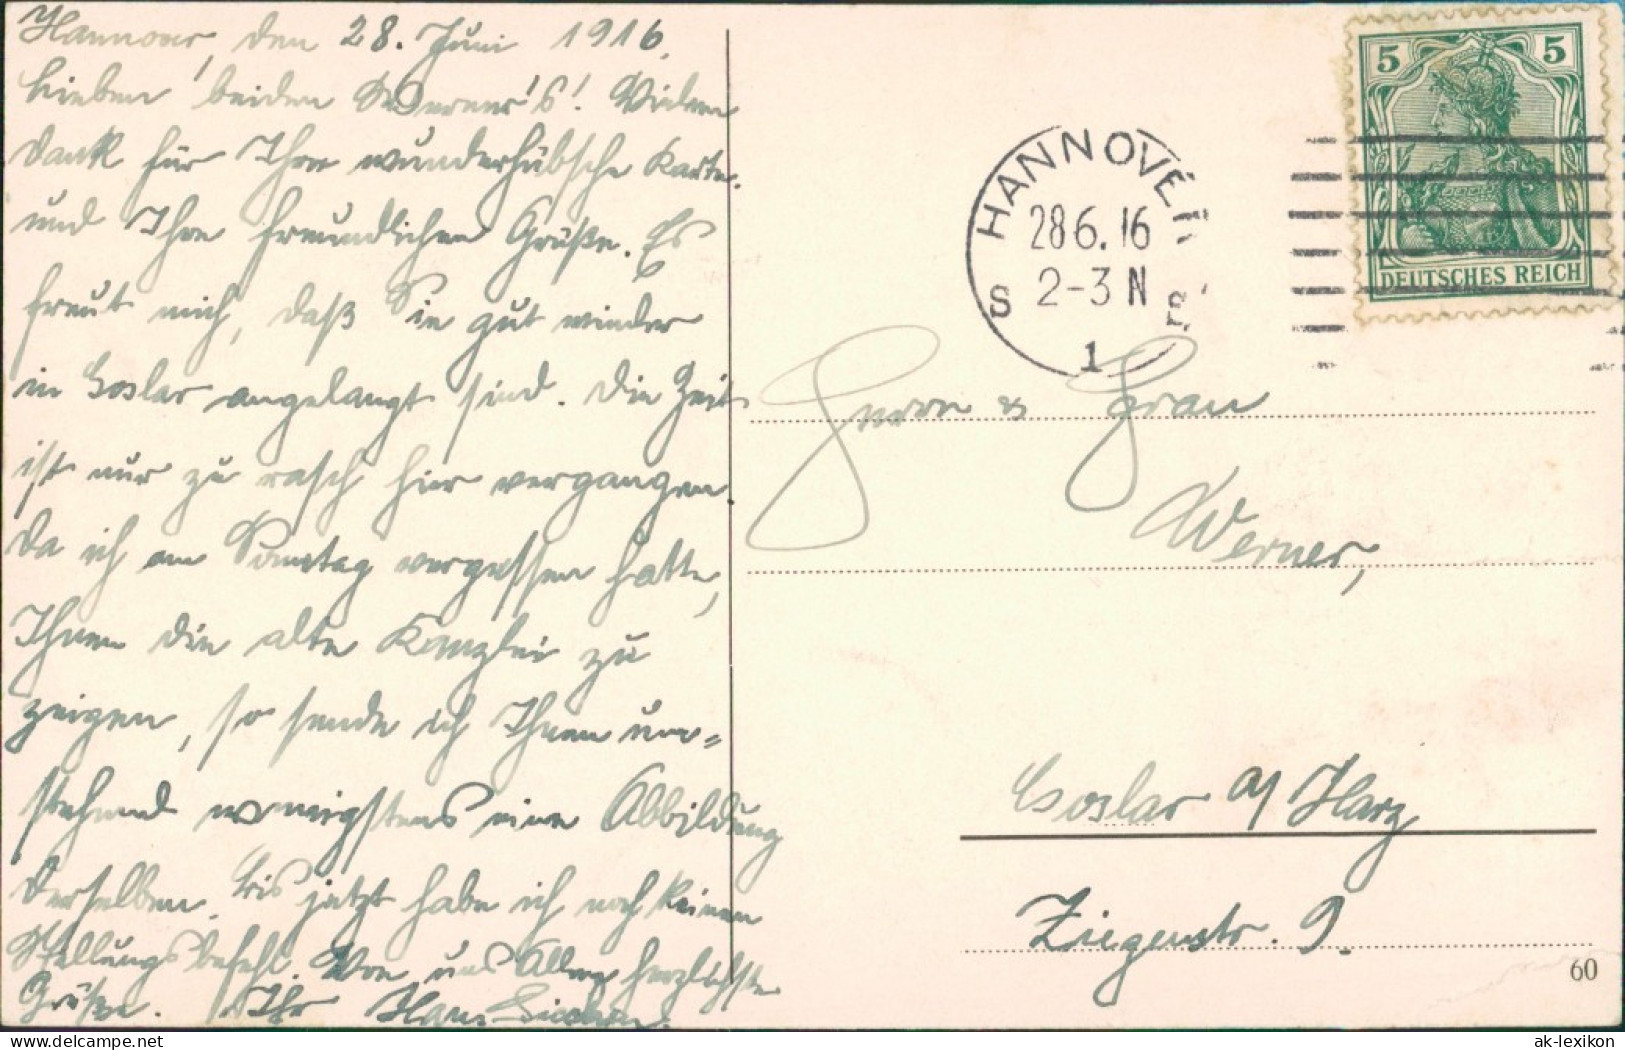 Hannover, den 28. Juni 1916.
Lieben beiden Werner's! Vielen
Dank für Ihre wunderhübsche Karte
und Ihre freundlichen Grüße. Es
freut mich, daß Sie gut wieder
in Goslar angelangt sind. Die Zeit
ist nur zu rasch hier vergangen.
Da ich am Samstag vergessen hatte,
Ihnen die alte Kanzlei zu
zeigen, so sende ich Ihnen um=
stehend wenigstens eine Abbildung
derselben. Bis jetzt habe ich noch keinen
Stellungsbefehl. Von uns Allen herzlichste
Grüße. Ihr Hans
5 5
DEUTSCHES REICH
HANNOVER
28.6.16
2-3 N
S 1
Herrn & Frau
Werner,
Goslar a/Harz
Ziegenstr. 9.
60
ansichtskarten-lexikon.de
ak-lexikon